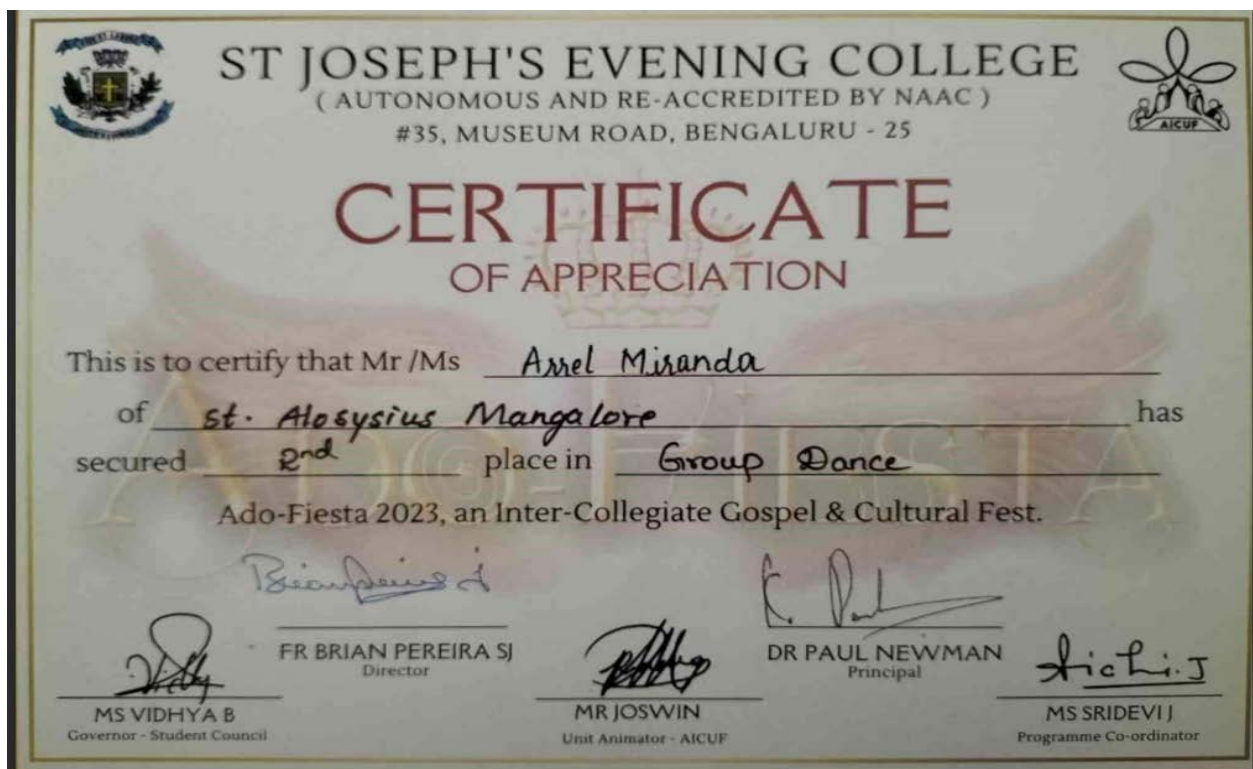 ST JOSEPH'S EVENING COLLEGE
( AUTONOMOUS AND RE-ACCREDITED BY NAAC )
#35, MUSEUM ROAD, BENGALURU - 25
AICUF
CERTIFICATE
OF APPRECIATION
This is to certify that Mr /Ms Arrel Miranda
of St. Alosysius Mangalore has
secured 2nd place in Group Dance
ADO-FIESTA
Ado-Fiesta 2023, an Inter-Collegiate Gospel & Cultural Fest.
FR BRIAN PEREIRA SJ
Director
DR PAUL NEWMAN
Principal
MS VIDHYA B
Governor - Student Council
MR JOSWIN
Unit Animator - AICUF
MS SRIDEVI J
Programme Co-ordinator